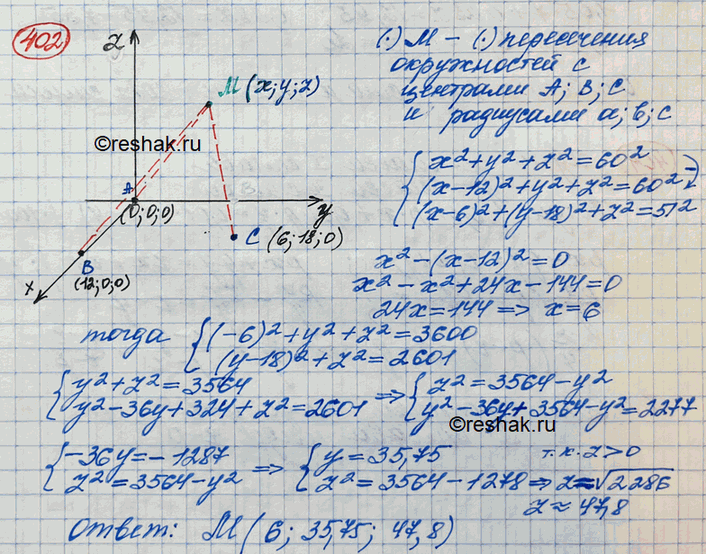 402
z
M (x; y; z)
©reshak.ru
A
(0; 0; 0)
y
C (6; 18; 0)
B
(12; 0; 0)
x
(·) M – (·) пересечения
окружностей с
центрами A; B; C
и радиусами a; b; c
x² + y² + z² = 60²
(x-12)² + y² + z² = 60² ⇒
(x-6)² + (y-18)² + z² = 51²
x² - (x-12)² = 0
x² - x² + 24x - 144 = 0
24x = 144 ⇒ x = 6
тогда { (-6)² + y² + z² = 3600
(y-18)² + z² = 2601
{ y² + z² = 3564 ⇒ { z² = 3564 - y²
y² - 36y + 324 + z² = 2601 y² - 36y + 3564 - y² = 2277
©reshak.ru
{ -36y = -1287 ⇒ { y = 35,75 т.к. z > 0
z² = 3564 - y² z² = 3564 - 1278 ⇒ z = √2286
z ≈ 47,8
Ответ: M (6; 35,75; 47,8)